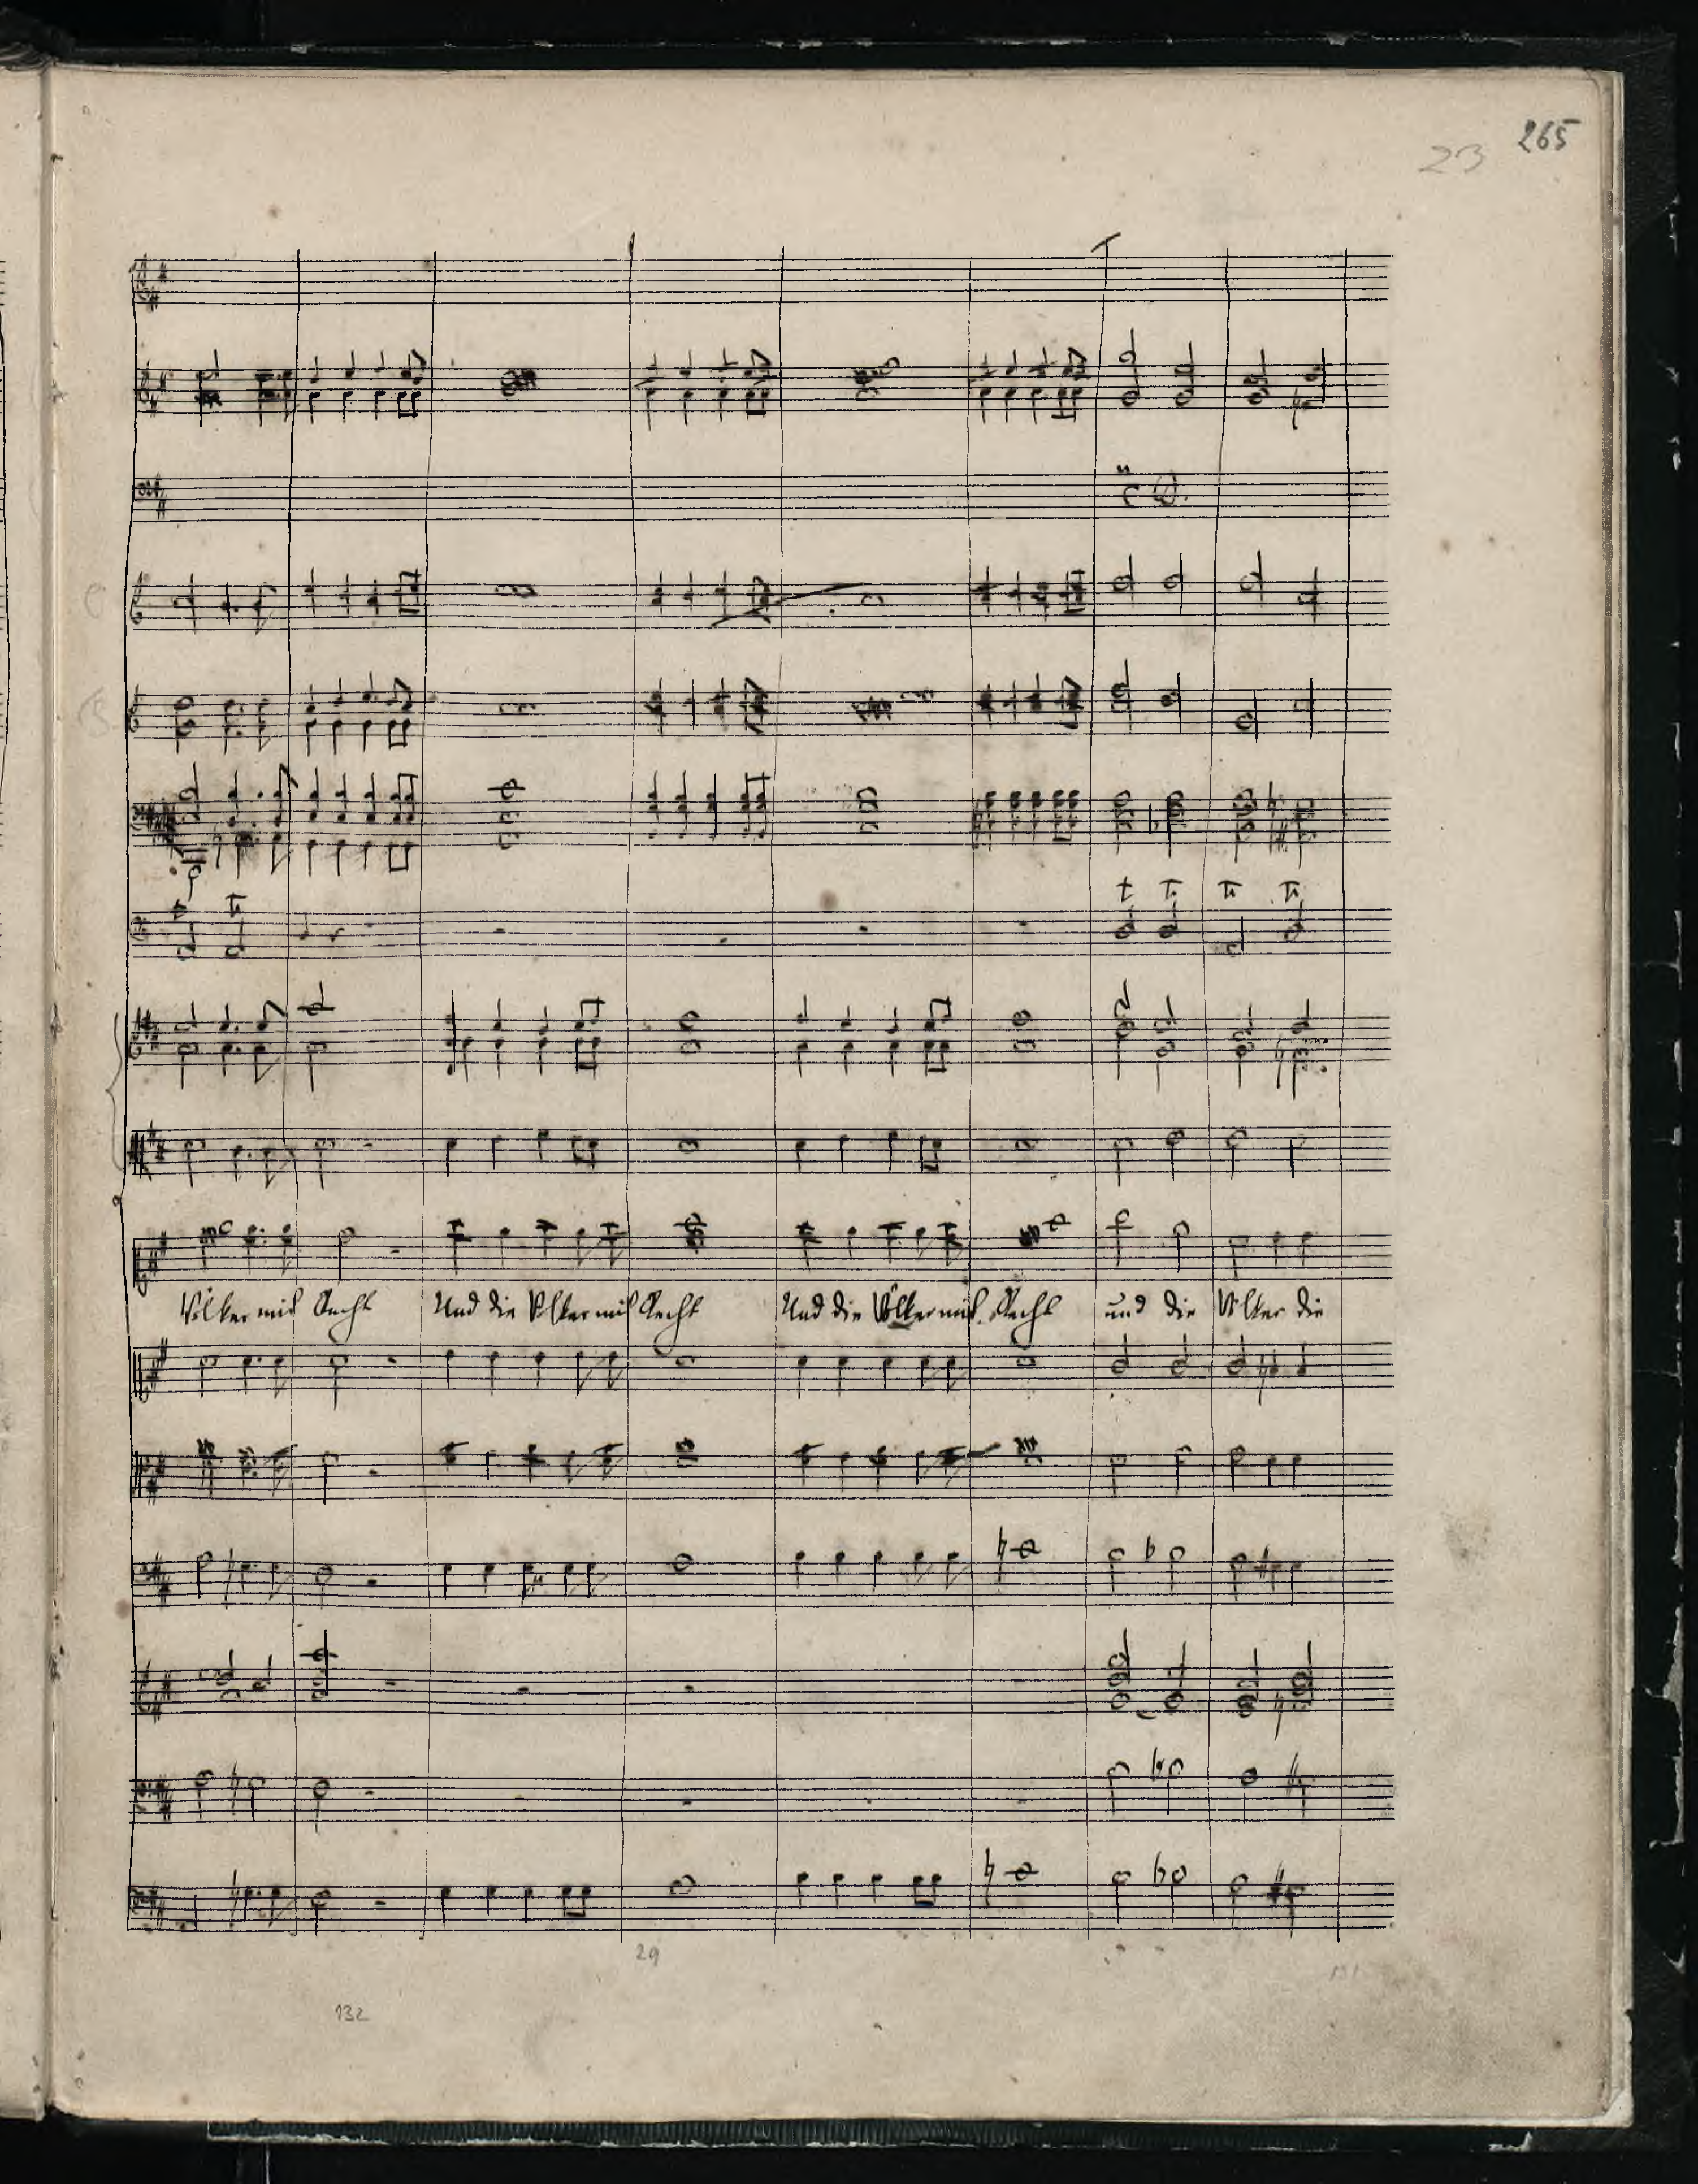 265
23
Völker mit Recht Und die Völker mit Recht Und die Völker mit Recht und die Völker die
29
132